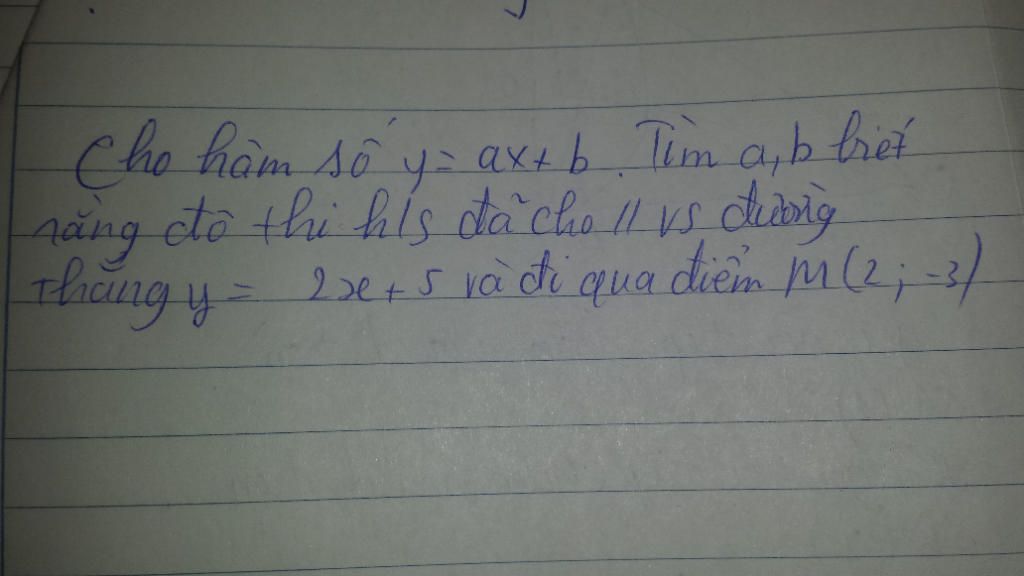 Cho hàm số y = ax + b. Tìm a, b biết
rằng đồ thi h/s đã cho // vs đường
thẳng y = 2x + 5 và đi qua điểm M(2; -3)